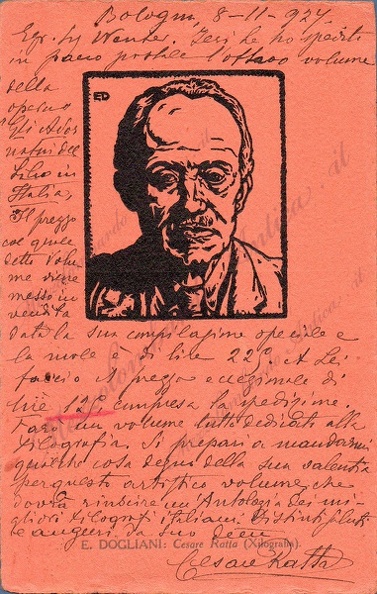 Bologna, 8-11-924.
Egr. Sig Wenke. Ieri Le ho spedito
in pacco postale l'ottavo volume
della
opera
Gli Ador
natori del
Libro in
Italia,
Il prezzo
col quale
detto Volu
me viene
messo in
vendita
data la sua compilazione speciale e
la mole e di lire 220 A Lei
faccio il prezzo eccezionale di
lire 120 compresa la spedizione.
Farò un volume tutto dedicato alla
Xilografia. Si prepari a mandarmi
qualche cosa degna della sua valentia
per questo artistico volume, che
dovrà riuscire un Antologia dei mi-
gliori xilografi italiani. Distinti saluti
e auguri da suo
ED
E. DOGLIANI: Cesare Ratta (Xilografia).
Cesare Ratta